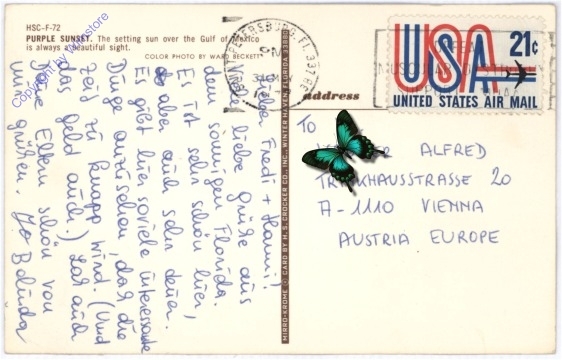 HSC-F-72
PURPLE SUNSET. The setting sun over the Gulf of Mexico
is always a beautiful sight.
COLOR PHOTO BY WARD BECKETT
Lieber Fredi + Hanni!
Viele liebe Grüße aus
dem sonnigen Florida.
Es ist sehr schön hier,
aber auch sehr teuer.
Es gibt hier soviele interessante
Dinge anzuschauen, das die
Zeit zu knapp wird. (Und
das Geld auch.) Laß auch
Deine Eltern schön von
mir grüßen.
MIRRO-KROME ® CARD BY H. S. CROCKER CO., INC., WINTER HAVEN, FLORIDA 33880
ST PETERSBURG, FL 337
PM
address
USA 21¢
UNITED STATES AIR MAIL
TO
ALFRED
20
A-1110 VIENNA
AUSTRIA EUROPE